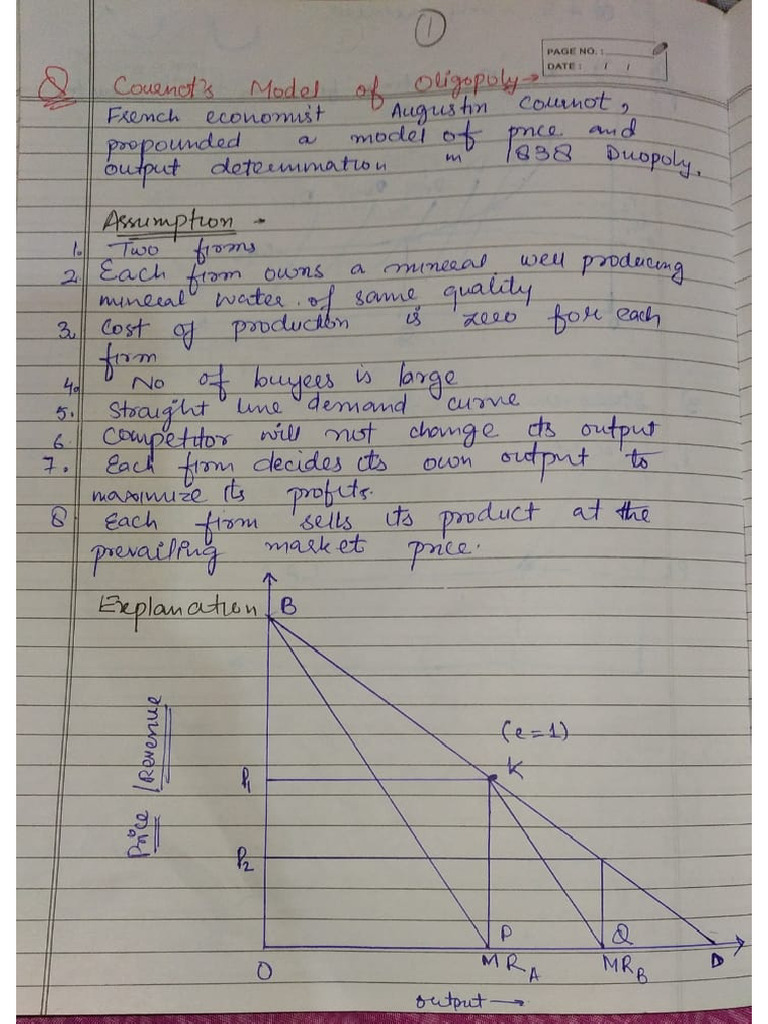 1
PAGE NO. :
DATE : / /
Q Cournot's Model of Oligopoly→
French economist Augustin Cournot,
propounded a model of price and
output determination in 1838 Duopoly.
Assumption -
1. Two firms
2. Each firm owns a mineral well producing
mineral water of same quality
3. Cost of production is zero for each
firm
4. No of buyers is large
5. Straight line demand curve
6. Competitor will not change its output
7. Each firm decides its own output to
maximize its profits.
8 Each firm sells its product at the
prevailing market price.
Explanation B
(e=1)
K
Price / Revenue
P1
P2
P Q
O MRA MRB D
output →